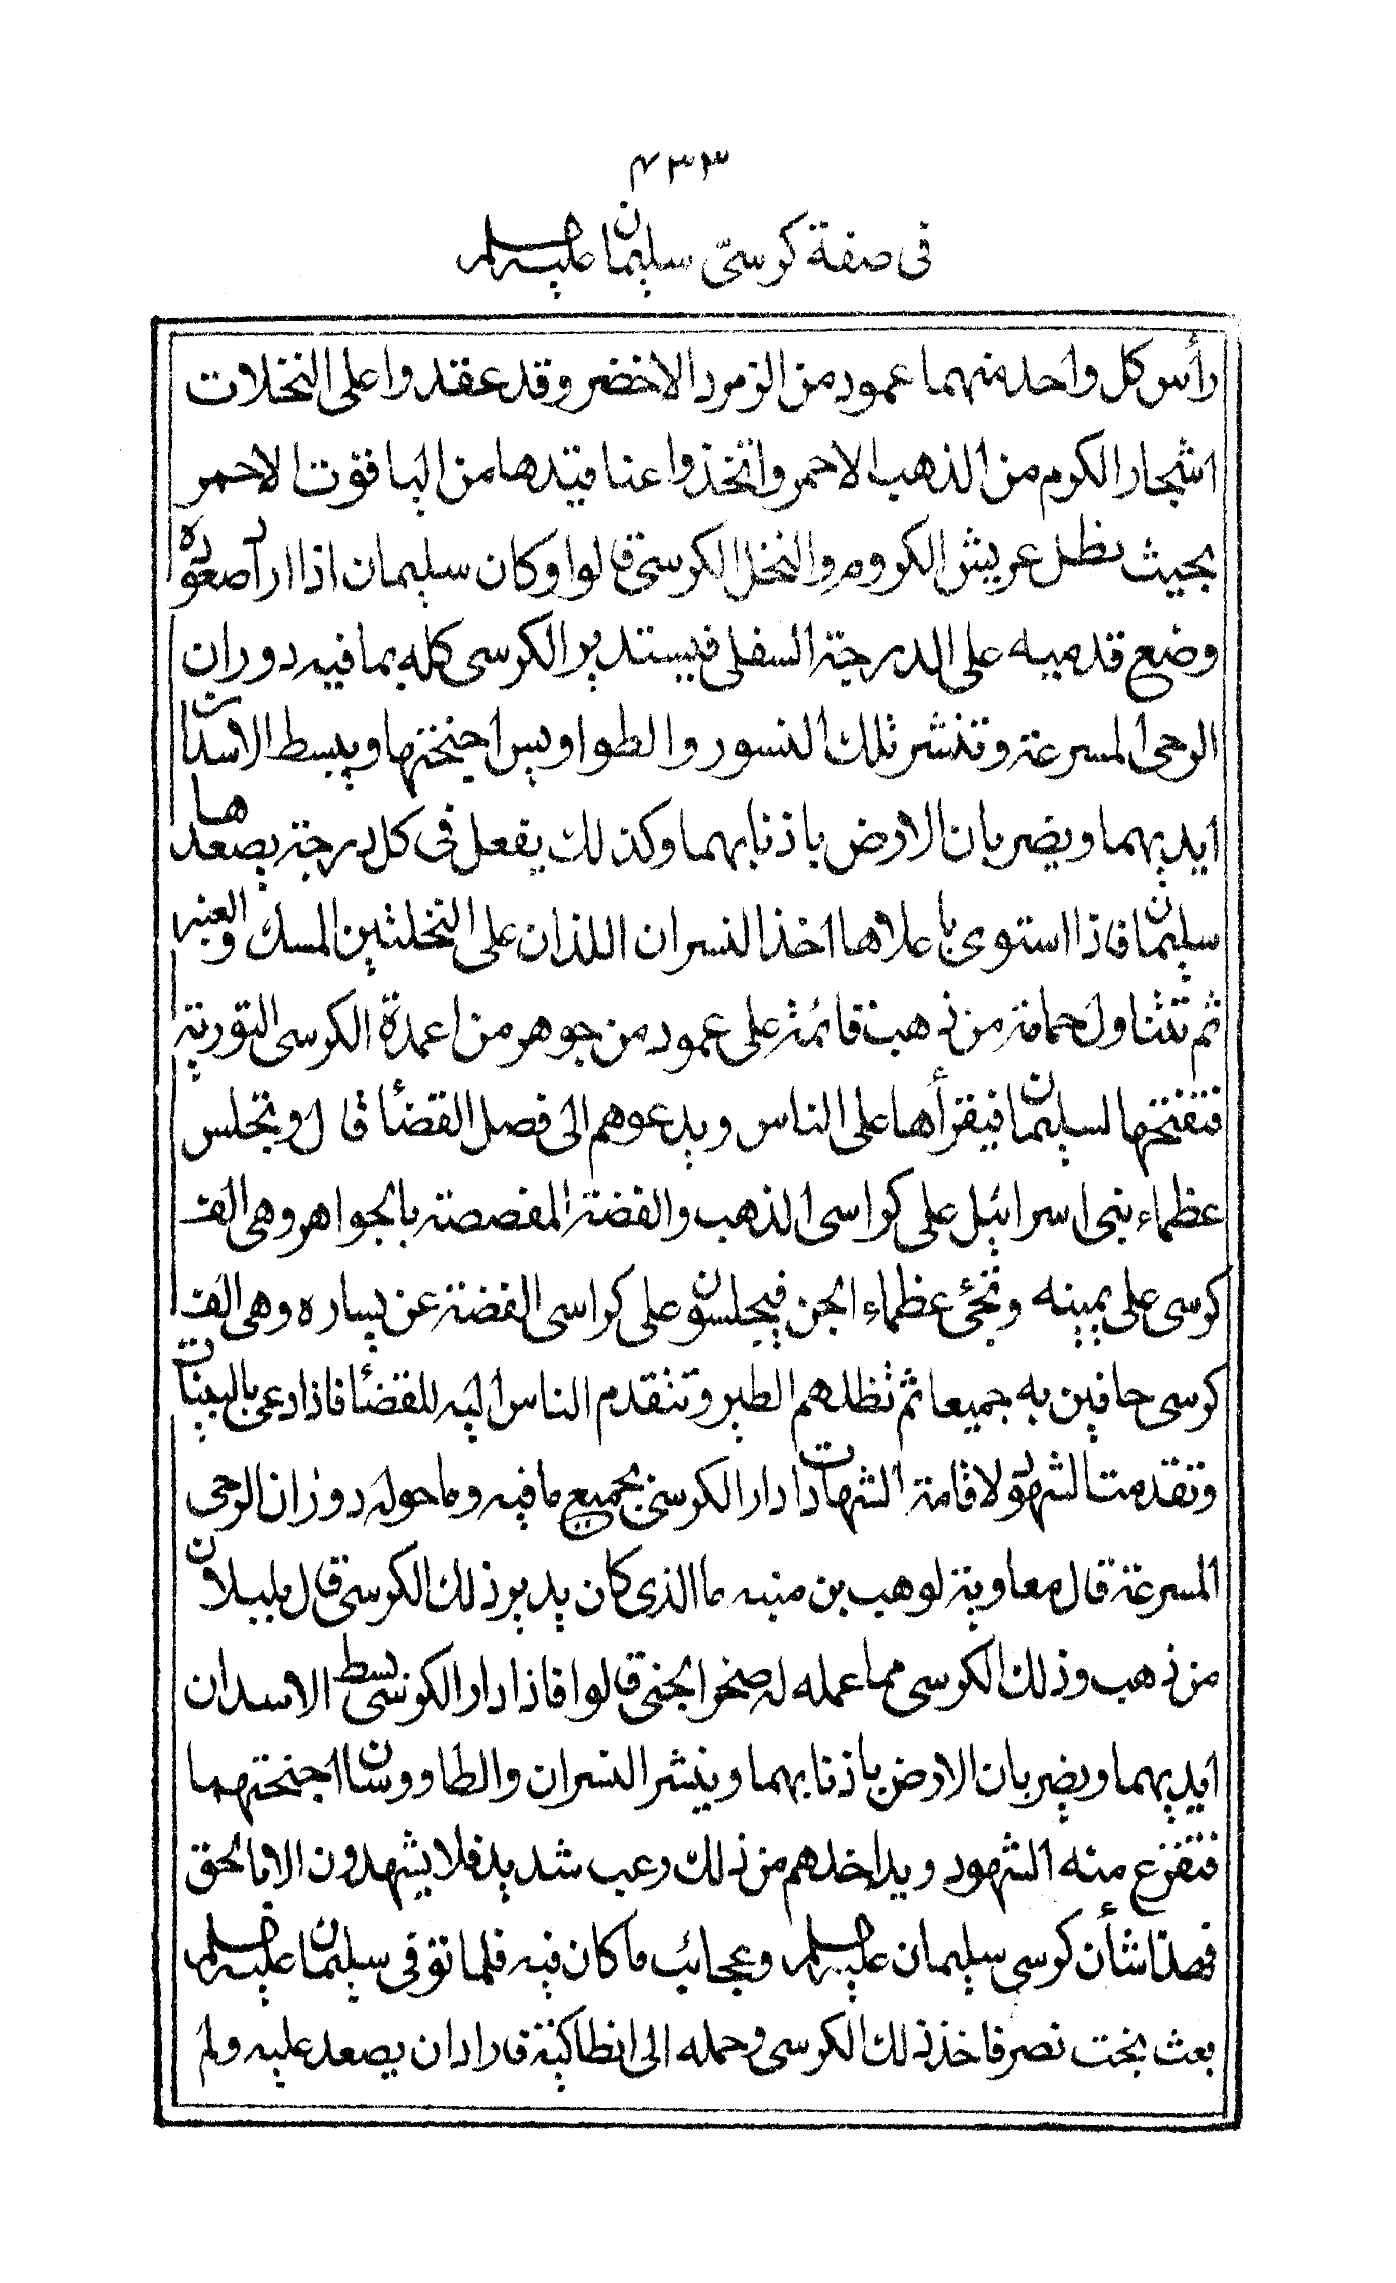 ٤٣٣
فى صفة كرسىّ سليمان عليه السلام
رأس كل واحد منهما عمود من الزمرد الاخضر وقد عقدوا على النخلات
اشجار الكروم من الذهب الاحمر واتّخذوا عناقيدها من الياقوت الاحمر
بحيث تظل عريش الكروم والنخل الكرسى قالوا وكان سليمان اذا اراد صعوده
وضع قدميه على الدرجة السفلى فيستدير الكرسى كله بما فيه دوران
الرحى المسرعة وتنشر تلك النسور والطواويس اجنحتها ويبسط الاسدان
ايديهما ويضربان الارض باذنابهما وكذلك يفعل فى كل درجة يصعدها
سليمان فاذا استوى باعلاها اخذ النسران اللذان على النخلتين المسك والعنبر
ثم تتناول حمامة من ذهب قائمة على عمود من جوهر من اعمدة الكرسى التورية
فتفتحها لسليمان فيقرأها على الناس ويدعوهم الى فصل القضأ قال وتجلس
عظماء بنى اسرائيل على كراسى الذهب والفضة المفصصة بالجواهر وهى الف
كرسى على يمينه وتجئ عظماء الجن فيجلسون على كراسى الفضة عن يساره وهى الف
كرسى حافين به جميعا ثم تظلهم الطير وتتقدم الناس اليه للقضأ فاذا دعى بالبينات
وتقدمت الشهود لاقامة الشهادات دار الكرسى بجميع ما فيه وما حوله دوران الرحى
المسرعة قال معاوية لوهب بن منبه ما الذى كان يدير ذلك الكرسى قال بلبلان
من ذهب وذلك الكرسى مما عمله له صخر الجنى قالوا فاذا دار الكرسى بسط الاسدان
ايديهما ويضربان الارض باذنابهما وينشر النسران والطاووسان اجنحتهما
فتفزع منه الشهود ويداخلهم من ذلك رعب شديد فلا يشهدون الا بالحق
فهذا شأن كرسى سليمان عليه السلم وعجائب ما كان فيه فلما توفى سليمان عليه السلم
بعث بخت نصر فاخذ ذلك الكرسى وحمله الى انطاكية فاراد ان يصعد عليه ولم